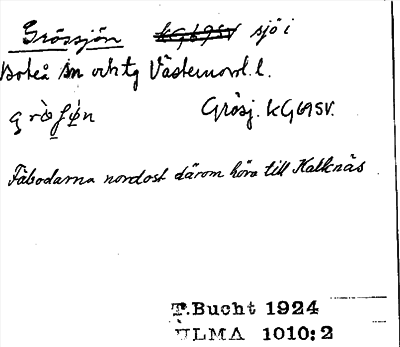 Grössjön KG69SV sjö i
Boteå sn och tg Västernorrl. l.
Grösj. KG69SV.
Fäbodarna nordost därom höra till Kalknäs
T.Bucht 1924
ULMA 1010:2